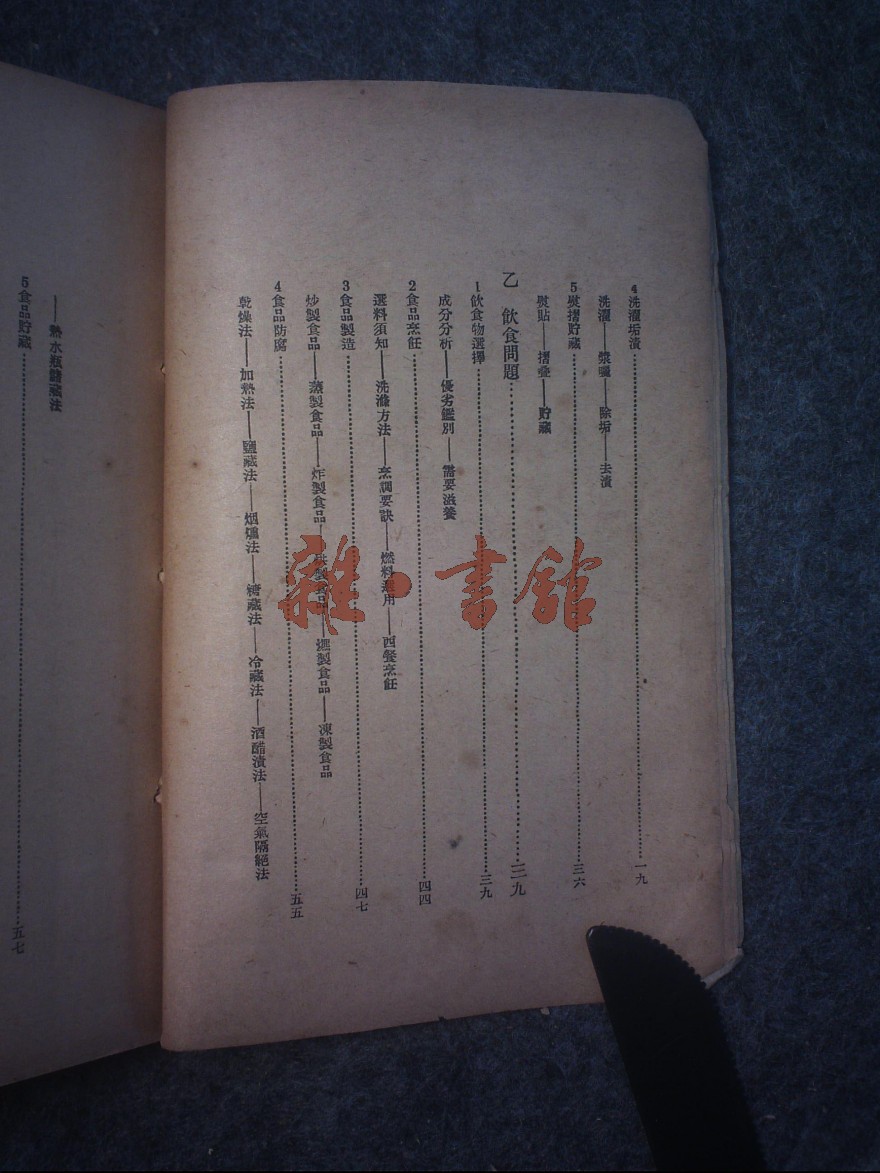 4 洗濯垢漬……一九
洗濯——漿曬——除垢——去漬
5 熨摺貯藏……三六
熨貼——摺疊——貯藏
乙 飲食問題……三九
1 飲食物選擇……三九
成分分析——優劣鑑別——需要滋養
2 食品烹飪……四四
選料須知——洗滌方法——烹調要訣——燃料選用——西餐烹飪
3 食品製造……四七
炒製食品——蒸製食品——炸製食品——製食品——製食品——凍製食品
4 食品防腐……五五
乾燥法——加熱法——鹽藏法——烟燻法——糖藏法——冷藏法——酒醋漬法——空氣隔絕法
——熱水瓶貯藏法
5 食品貯藏……五七
雜·書館